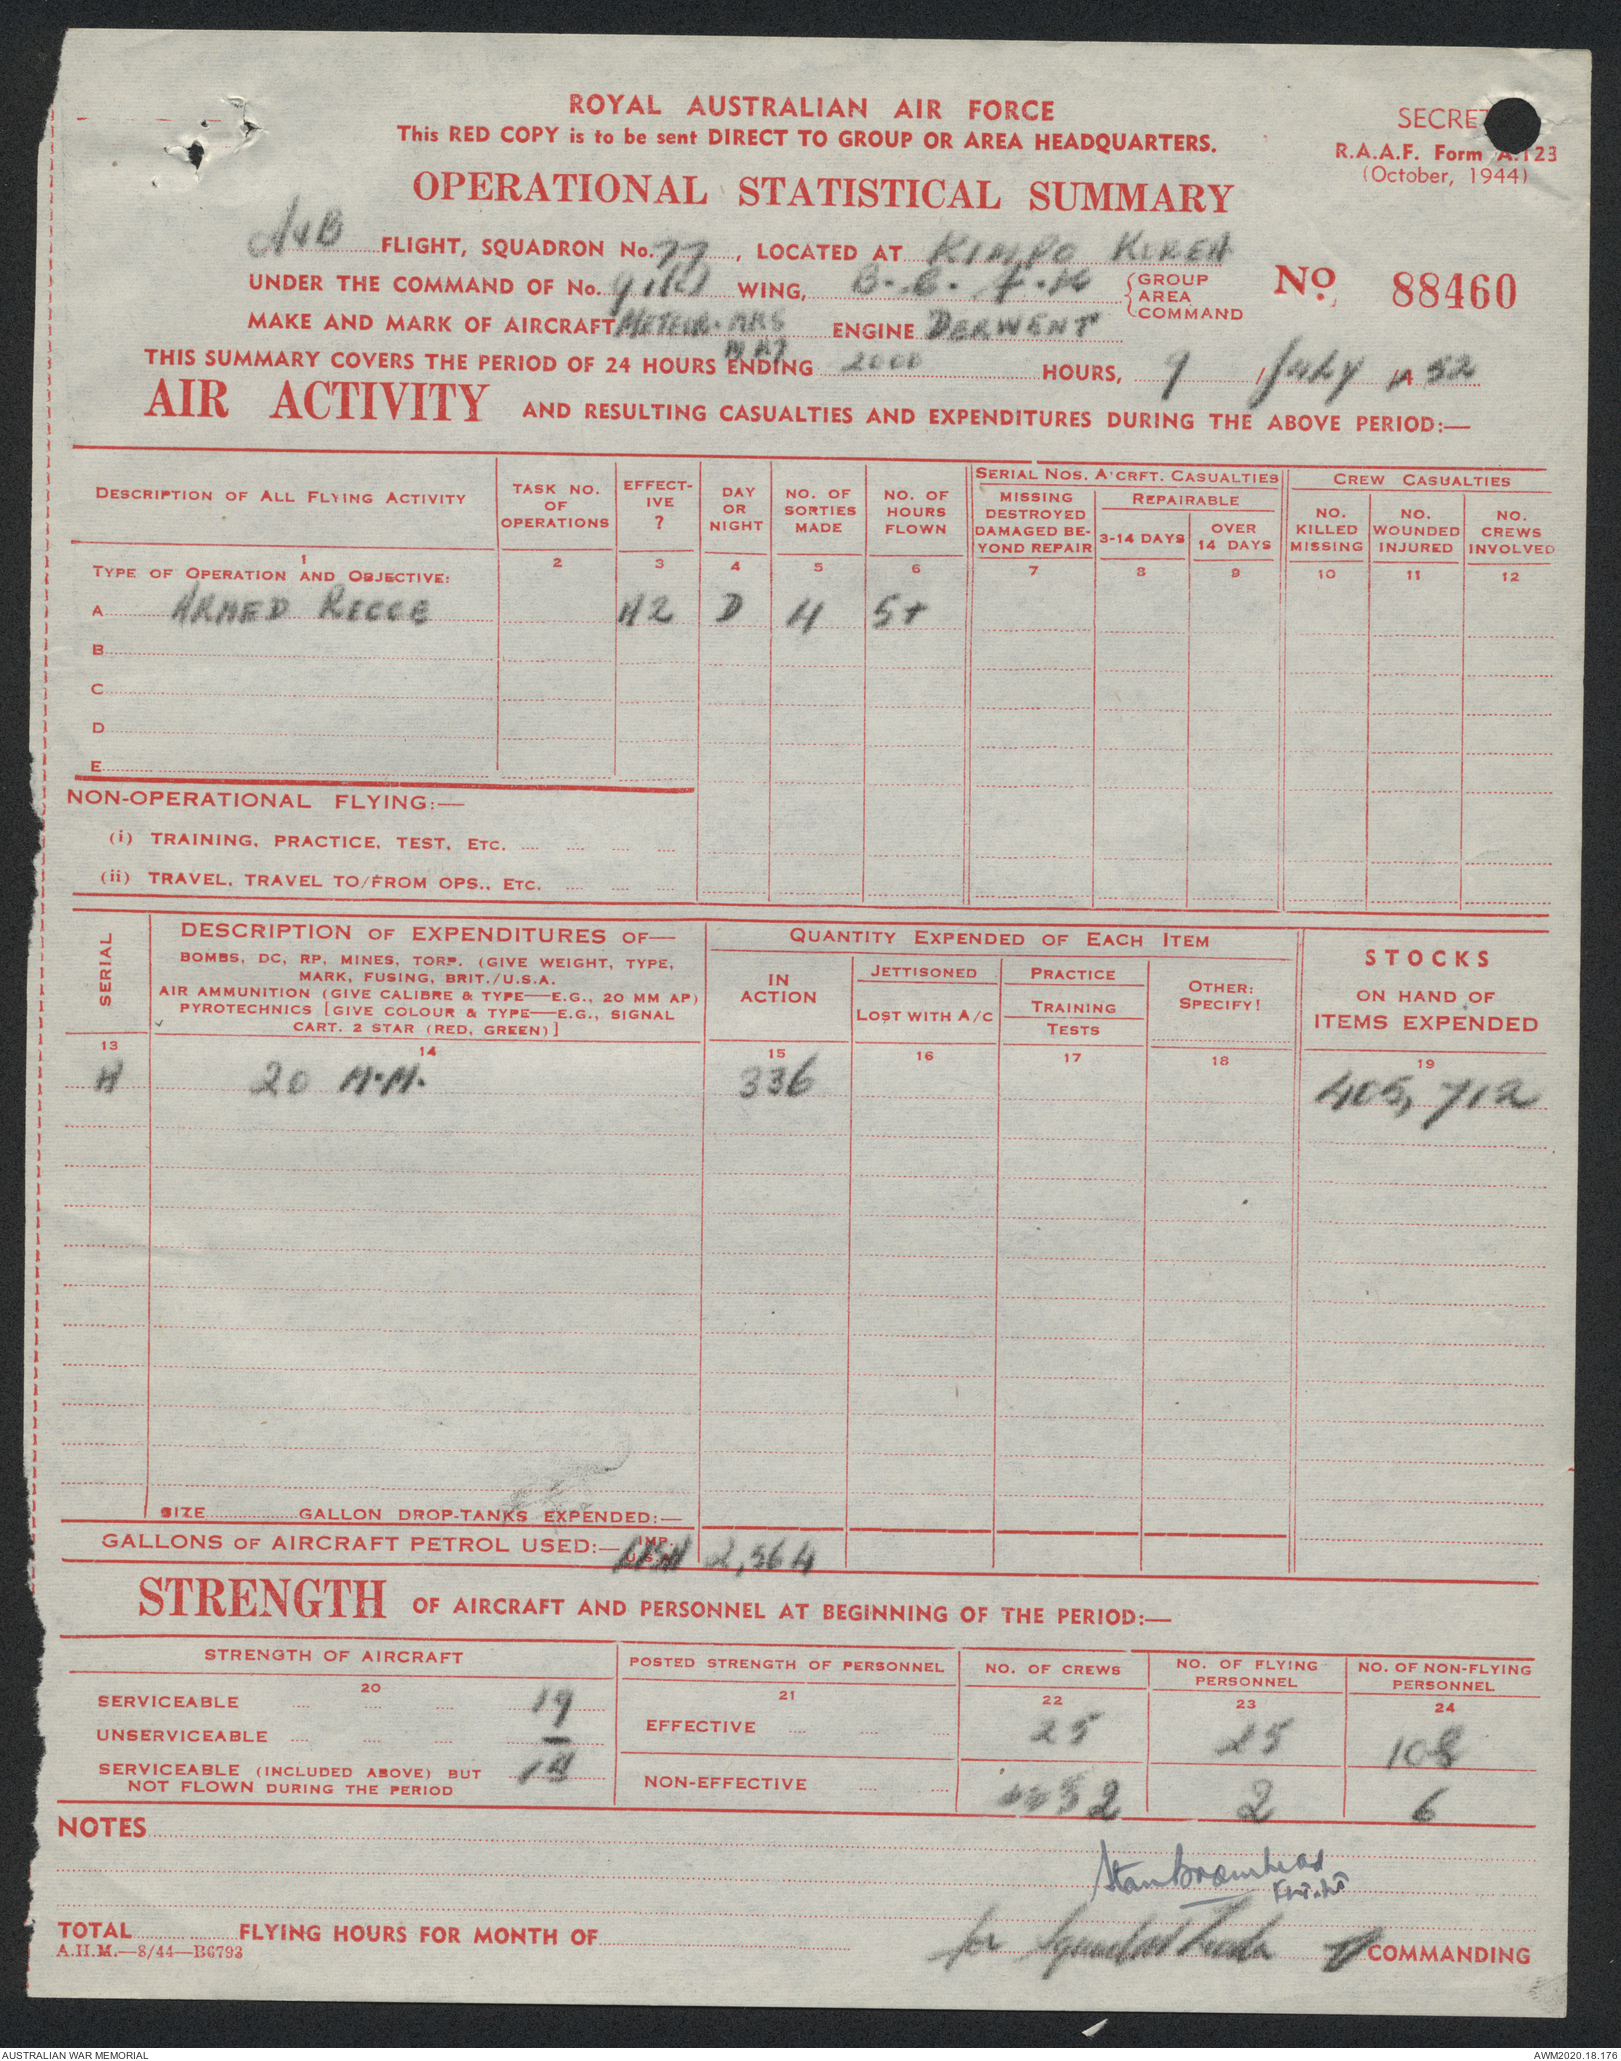 ROYAL AUSTRALIAN AIR FORCE
This RED COPY is to be sent DIRECT TO GROUP OR AREA HEADQUARTERS.
SECRE
R.A.A.F. Form A.123
(October, 1944)
OPERATIONAL STATISTICAL SUMMARY
A&B FLIGHT, SQUADRON No. 77, LOCATED AT KIMPO KOREA
UNDER THE COMMAND OF No. 91(R) WING, B.C.F.K GROUP AREA COMMAND
No. 88460
MAKE AND MARK OF AIRCRAFT METEOR MK8 ENGINE DERWENT
MK7
THIS SUMMARY COVERS THE PERIOD OF 24 HOURS ENDING 2000 HOURS, 9 / July 52
AIR ACTIVITY AND RESULTING CASUALTIES AND EXPENDITURES DURING THE ABOVE PERIOD:—
DESCRIPTION OF ALL FLYING ACTIVITY
TASK NO. OF OPERATIONS
EFFECTIVE ?
DAY OR NIGHT
NO. OF SORTIES MADE
NO. OF HOURS FLOWN
SERIAL NOS. A'CRFT. CASUALTIES
MISSING DESTROYED DAMAGED BEYOND REPAIR
REPAIRABLE
3-14 DAYS
OVER 14 DAYS
CREW CASUALTIES
NO. KILLED MISSING
NO. WOUNDED INJURED
NO. CREWS INVOLVED
1 2 3 4 5 6 7 8 9 10 11 12
TYPE OF OPERATION AND OBJECTIVE:
A ARMED RECCE A2 D 4 5+
B
C
D
E
NON-OPERATIONAL FLYING:—
(i) TRAINING, PRACTICE, TEST, ETC.
(ii) TRAVEL, TRAVEL TO/FROM OPS., ETC.
SERIAL
DESCRIPTION OF EXPENDITURES OF—
BOMBS, DC, RP, MINES, TORP. (GIVE WEIGHT, TYPE,
MARK, FUSING, BRIT./U.S.A.
AIR AMMUNITION (GIVE CALIBRE & TYPE—E.G., 20 MM AP)
PYROTECHNICS [GIVE COLOUR & TYPE—E.G., SIGNAL
CART. 2 STAR (RED, GREEN)]
QUANTITY EXPENDED OF EACH ITEM
IN ACTION
JETTISONED
LOST WITH A/C
PRACTICE
TRAINING
TESTS
OTHER: SPECIFY!
STOCKS
ON HAND OF
ITEMS EXPENDED
13 14 15 16 17 18 19
A 20 M.M. 336 405,712
SIZE GALLON DROP-TANKS EXPENDED:—
GALLONS OF AIRCRAFT PETROL USED:— USA 2,564
STRENGTH OF AIRCRAFT AND PERSONNEL AT BEGINNING OF THE PERIOD:—
STRENGTH OF AIRCRAFT
POSTED STRENGTH OF PERSONNEL
NO. OF CREWS
NO. OF FLYING PERSONNEL
NO. OF NON-FLYING PERSONNEL
20 21 22 23 24
SERVICEABLE 19
UNSERVICEABLE —
EFFECTIVE 25 25 108
SERVICEABLE (INCLUDED ABOVE) BUT
NOT FLOWN DURING THE PERIOD
NON-EFFECTIVE 2 2 6
NOTES
Stan Bromhead
Flt. Lt
TOTAL FLYING HOURS FOR MONTH OF
for Squadron Leader COMMANDING
A.H.M.—8/44—B6793
AUSTRALIAN WAR MEMORIAL
AWM2020.18.176